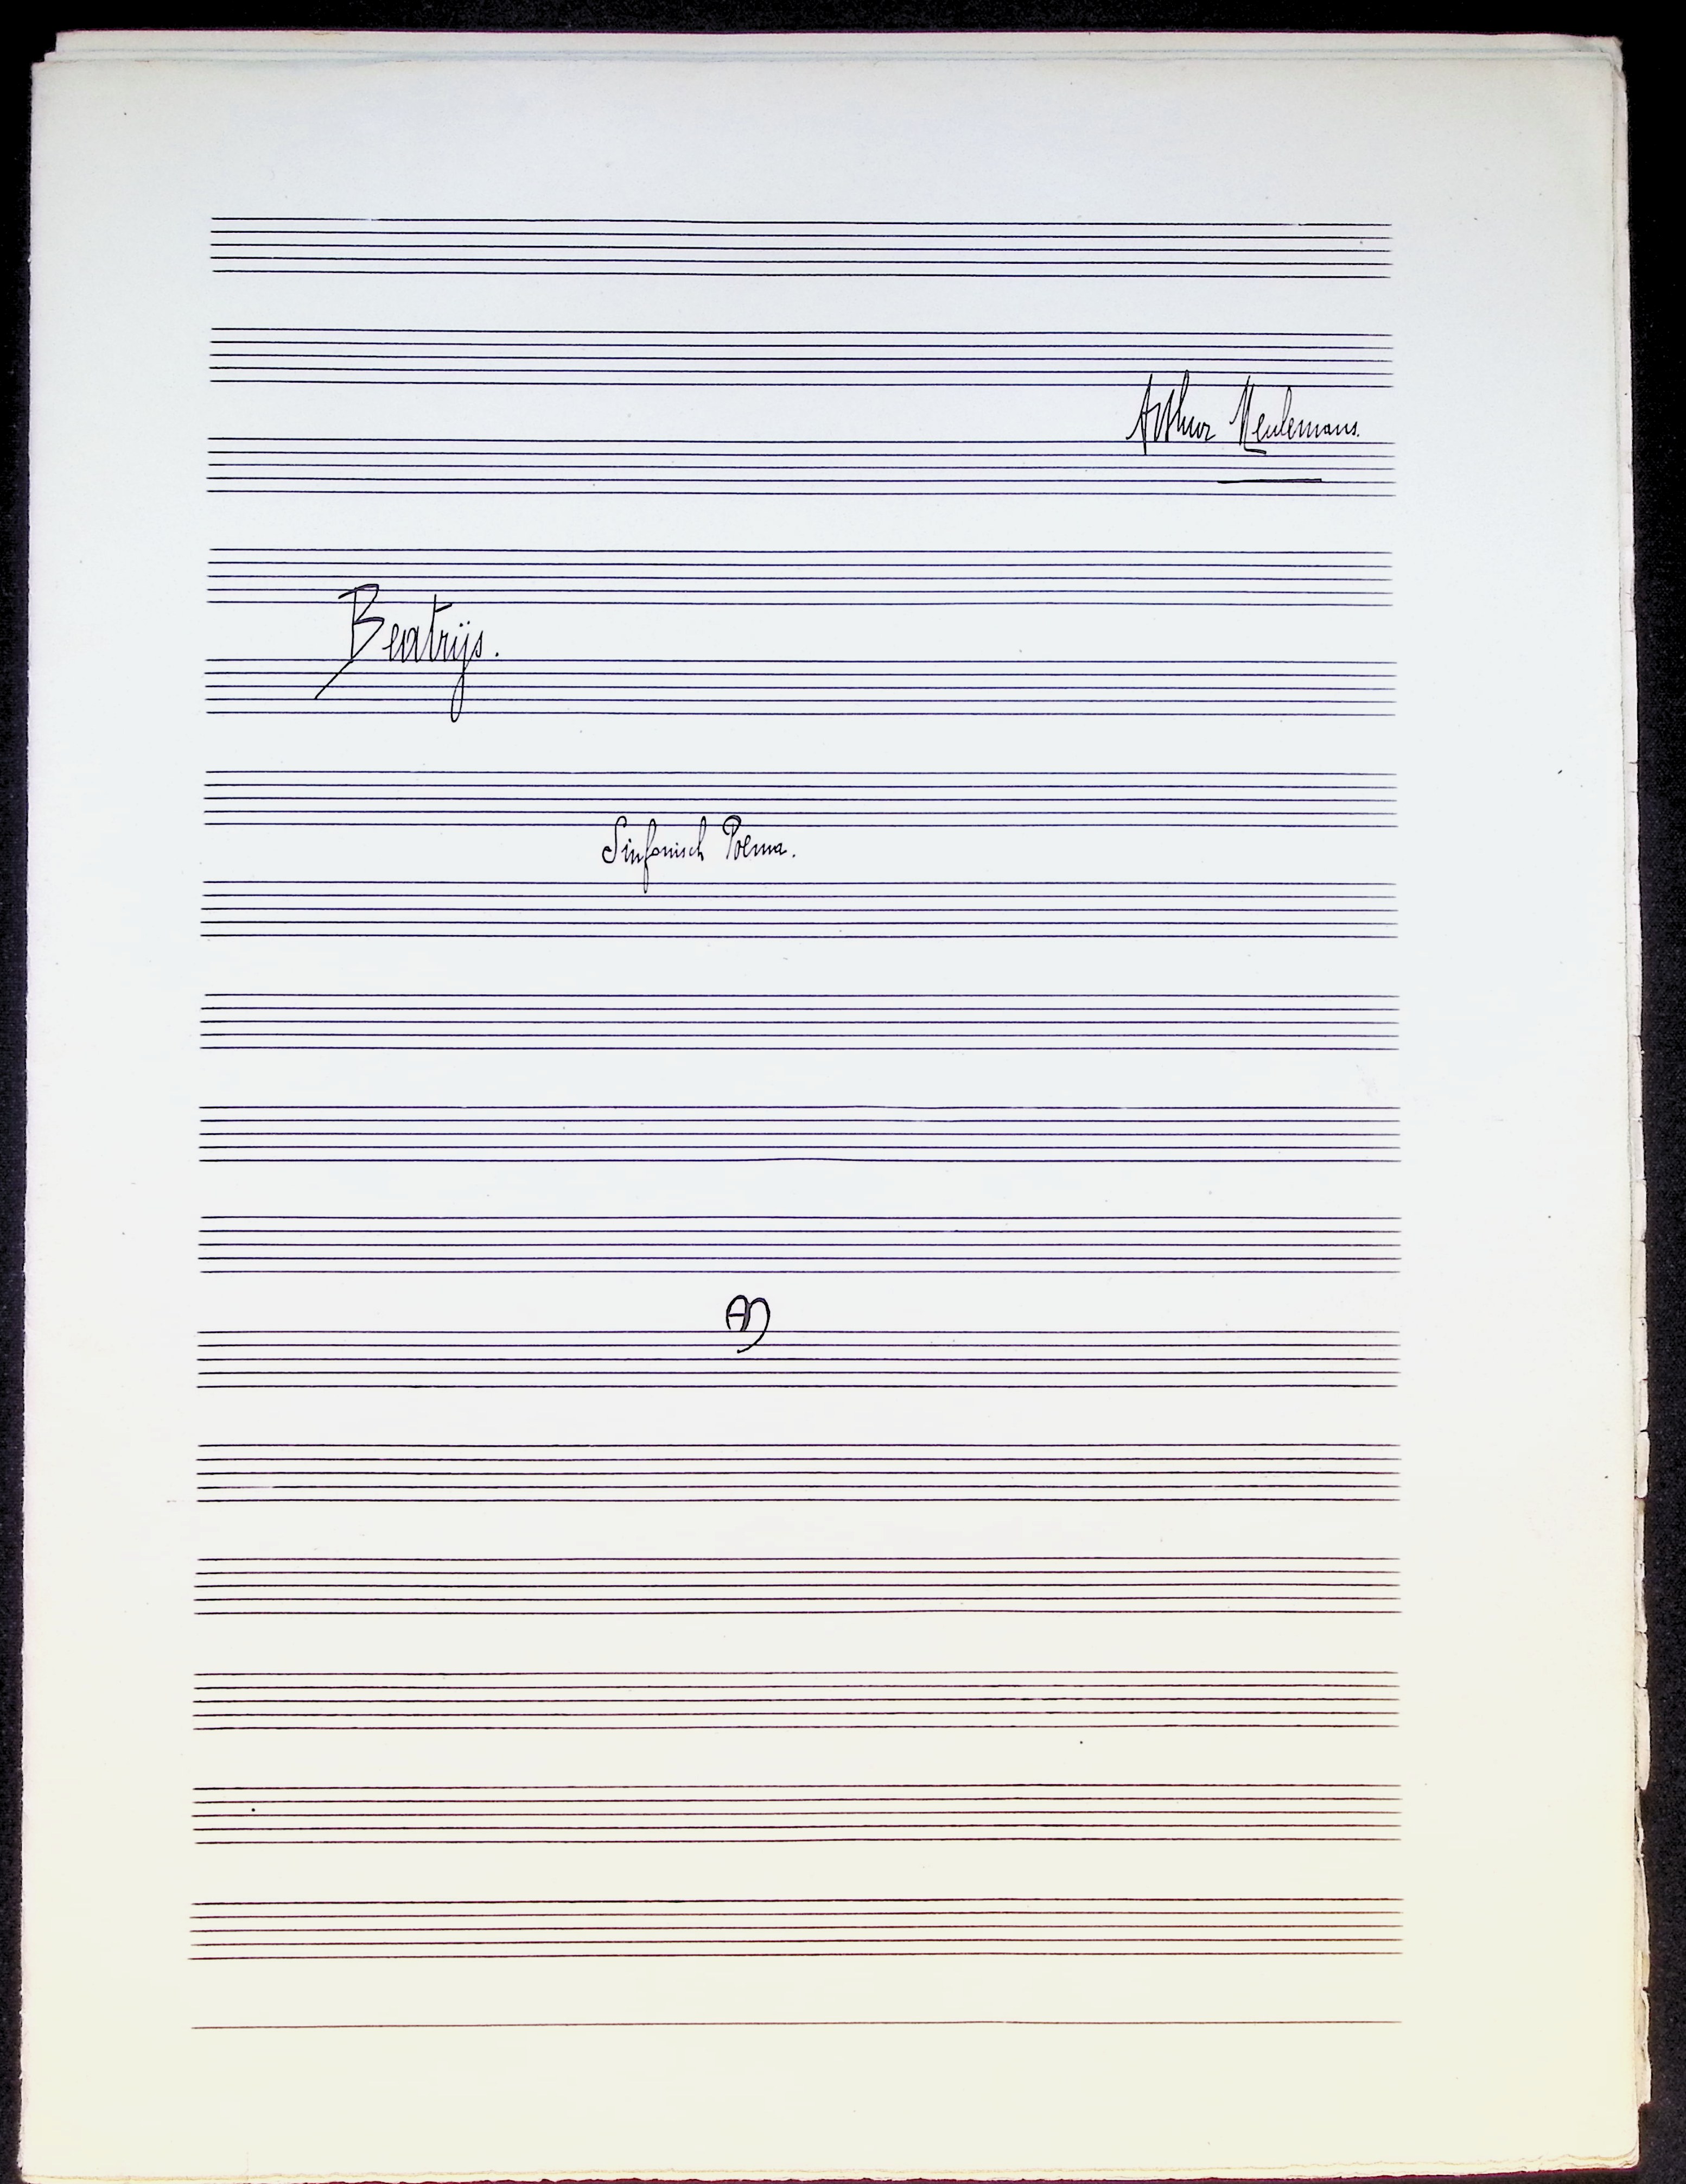 Arthur Meulemans.
Beatrijs.
Sinfonisch Poema.
AM